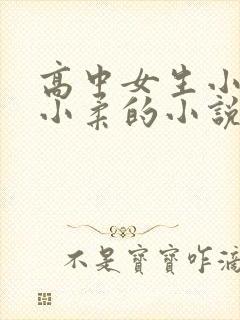 高中女生小
小柔的小說
不是寶寶咋滴